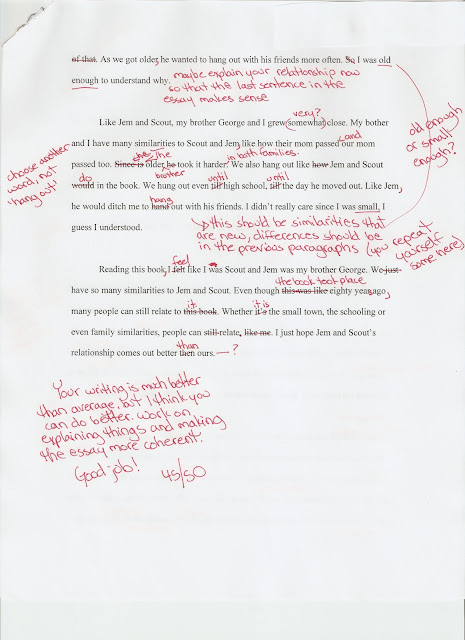 of that. As we got older, he wanted to hang out with his friends more often. So I was old
enough to understand why. maybe explain your relationship now
so that the last sentence in the
essay makes sense
old enough
or small
enough?
very?
Like Jem and Scout, my brother George and I grew somewhat close. My bother
and
and I have many similarities to Scout and Jem, like how their mom passed our mom
she. The in both families.
passed too. Since is older, he took it harder. We also hang out like how Jem and Scout
choose another
word, not
"hang out!"
do brother until until
would in the book. We hung out even till high school, till the day he moved out. Like Jem,
hang
he would ditch me to hand out with his friends. I didn't really care since I was small, I
guess I understood.
this should be similarities that
are new, differences should be
in the previous paragraphs (you repeat
yourself
some here)
feel
Reading this book, I felt like I was Scout and Jem was my brother George. We just
the book took place
have so many similarities to Jem and Scout. Even though this was like eighty years ago,
it it is
many people can still relate to this book. Whether it's the small town, the schooling or
or even family similarities, people can still relate, like me. I just hope Jem and Scout's
than
relationship comes out better then ours. —?
Your writing is much better
than average, but I think you
can do better. Work on
explaining things and making
the essay more coherent.
Good job! 45/50